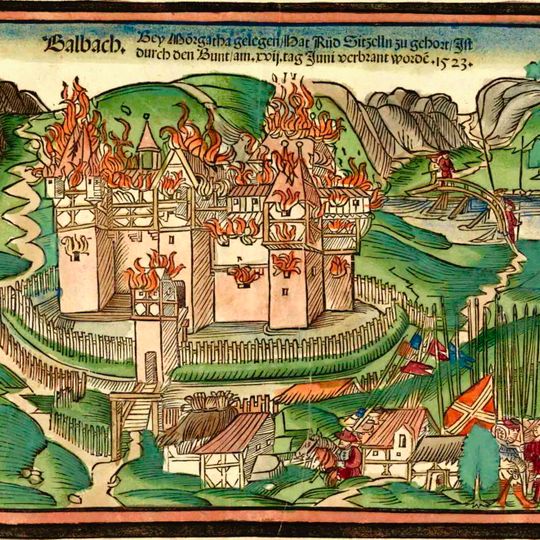 Balbach. Bey Mörgatha gelegen/Hat Rüd Sitzelln zu gehort/Ist
durch den Bunt/am.xvij.tag Juni verbrant wordē.1523.